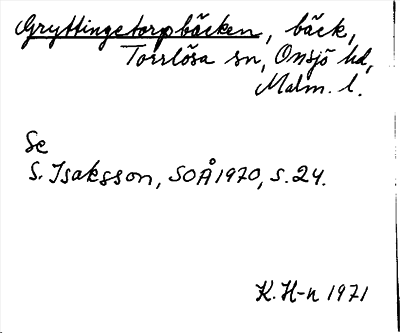 Gryttingetorpbäcken, bäck,
Torrlösa sn, Onsjö hd,
Malm. l.
Se
S. Isaksson, SOÅ 1970, s. 24.
K. H-n 1971